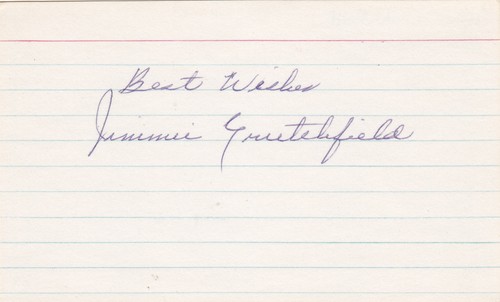 Best Wishes
Jimmie Crutchfield